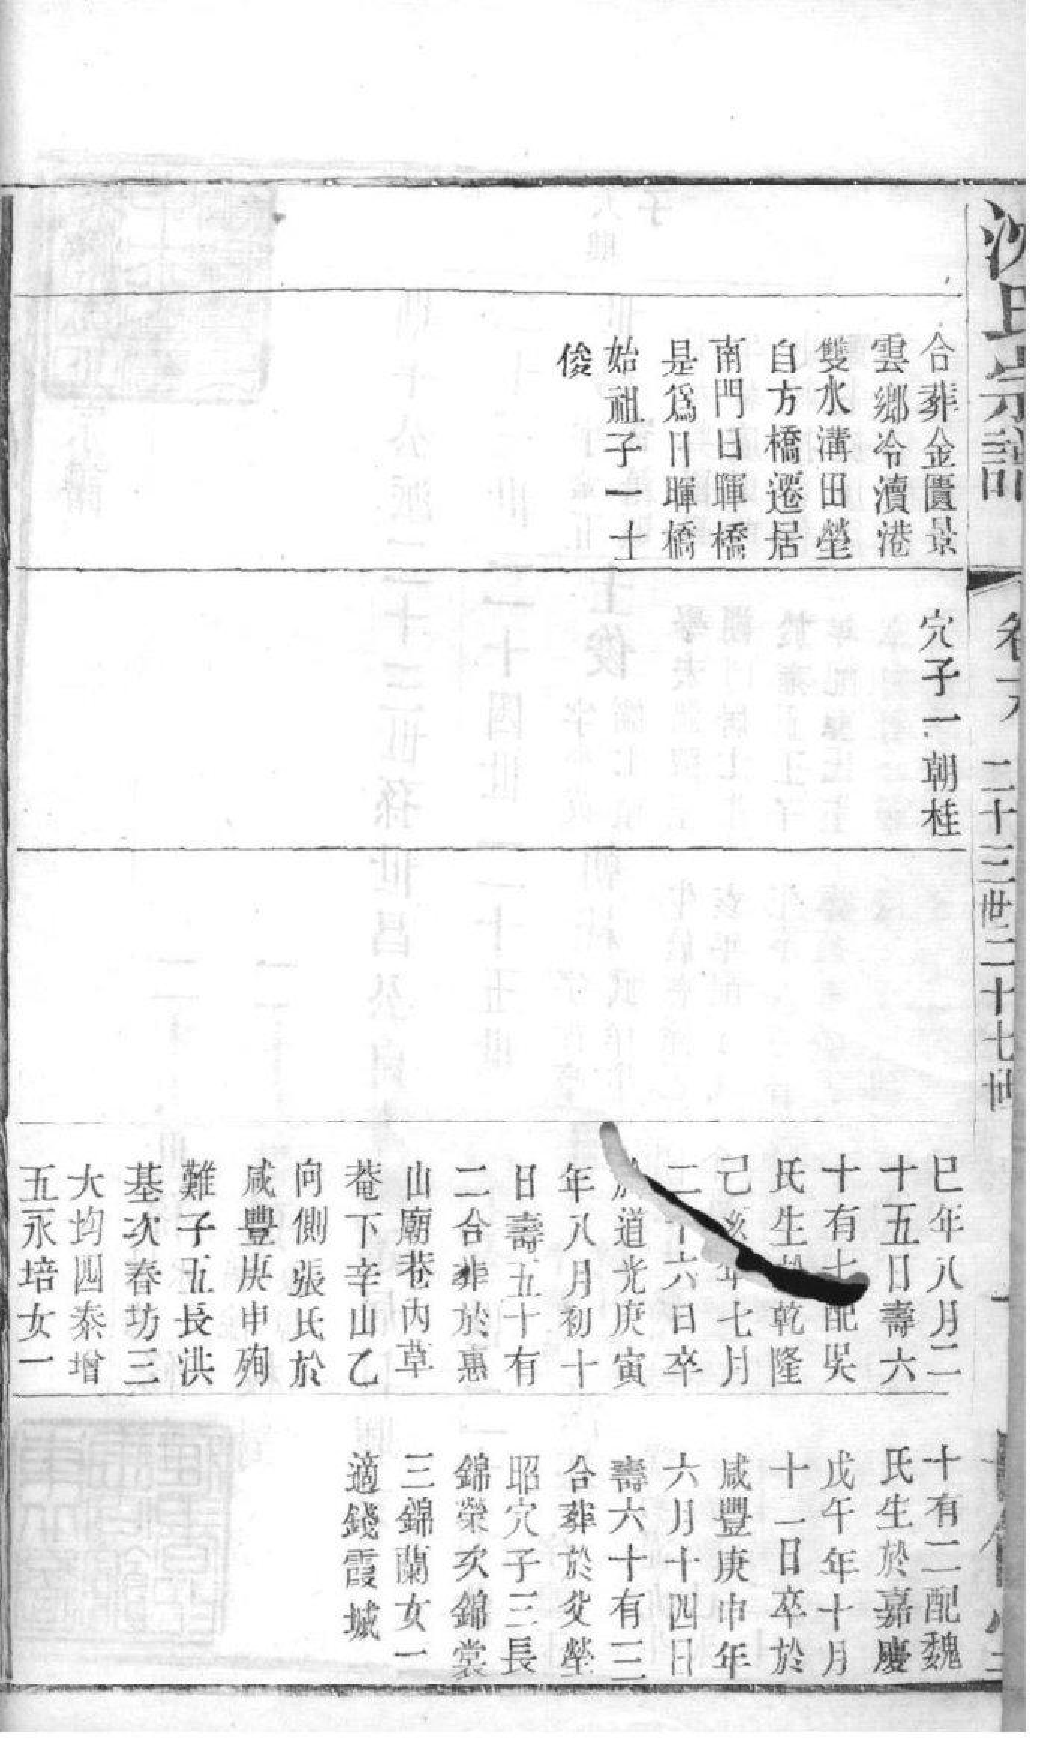 沈氏宗譜
卷六
二十三世二十七世
合葬金匱景
雲鄉冷瀆港
雙水溝田塋
自方橋遷居
南門日暉橋
是爲日暉橋
始祖子一士
俊
穴子一朝桂
巳年八月二
十五日壽六
十有七配吳
氏生於乾隆
己亥年七月
二十六日卒
於道光庚寅
年八月初十
日壽五十有
二合葬於惠
山廟巷內草
菴下辛山乙
向側張氏於
咸豐庚申殉
難子五長洪
基次春坊三
大均四泰增
五永培女一
十有二配魏
氏生於嘉慶
戊午年十月
十一日卒於
咸豐庚申年
六月十四日
壽六十有三
合葬於父塋
昭穴子三長
錦榮次錦裳
三錦蘭女一
適錢霞城